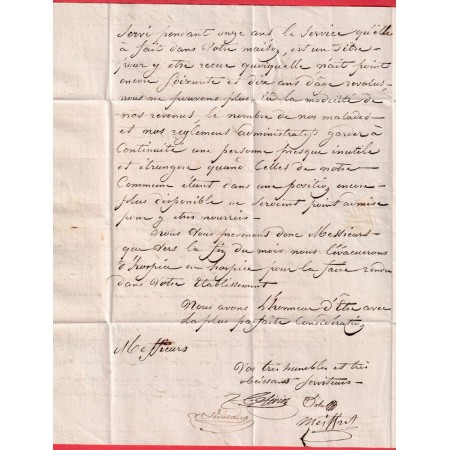 servi pendant onze ans, le service qu'elle
à fait dans votre maison, est un titre
pour y etre recue quoiquelle nait point
encore soixante et dix ans d'age revolus
nous ne pouvons plus, vû la modicité de
nos revenus, le nombre de nos malades
et nos reglement administratifs garder à
continuite une personne presque inutile
et étrangere quand celles de notre
Commune étant dans une position encore
plus disponible ne seroient point admise
pour y etre nourries
Nous Vous prevenons donc Messieurs
que vers la fin du mois nous l'évacuerons
d'hospice en hospice pour la faire rendre
dans votre Etablissement
Nous avons l'honneur d'Etre avec
la plus parfaite Consideration
Messieurs
Vos très humbles et très
obeissans serviteurs
Meiffret